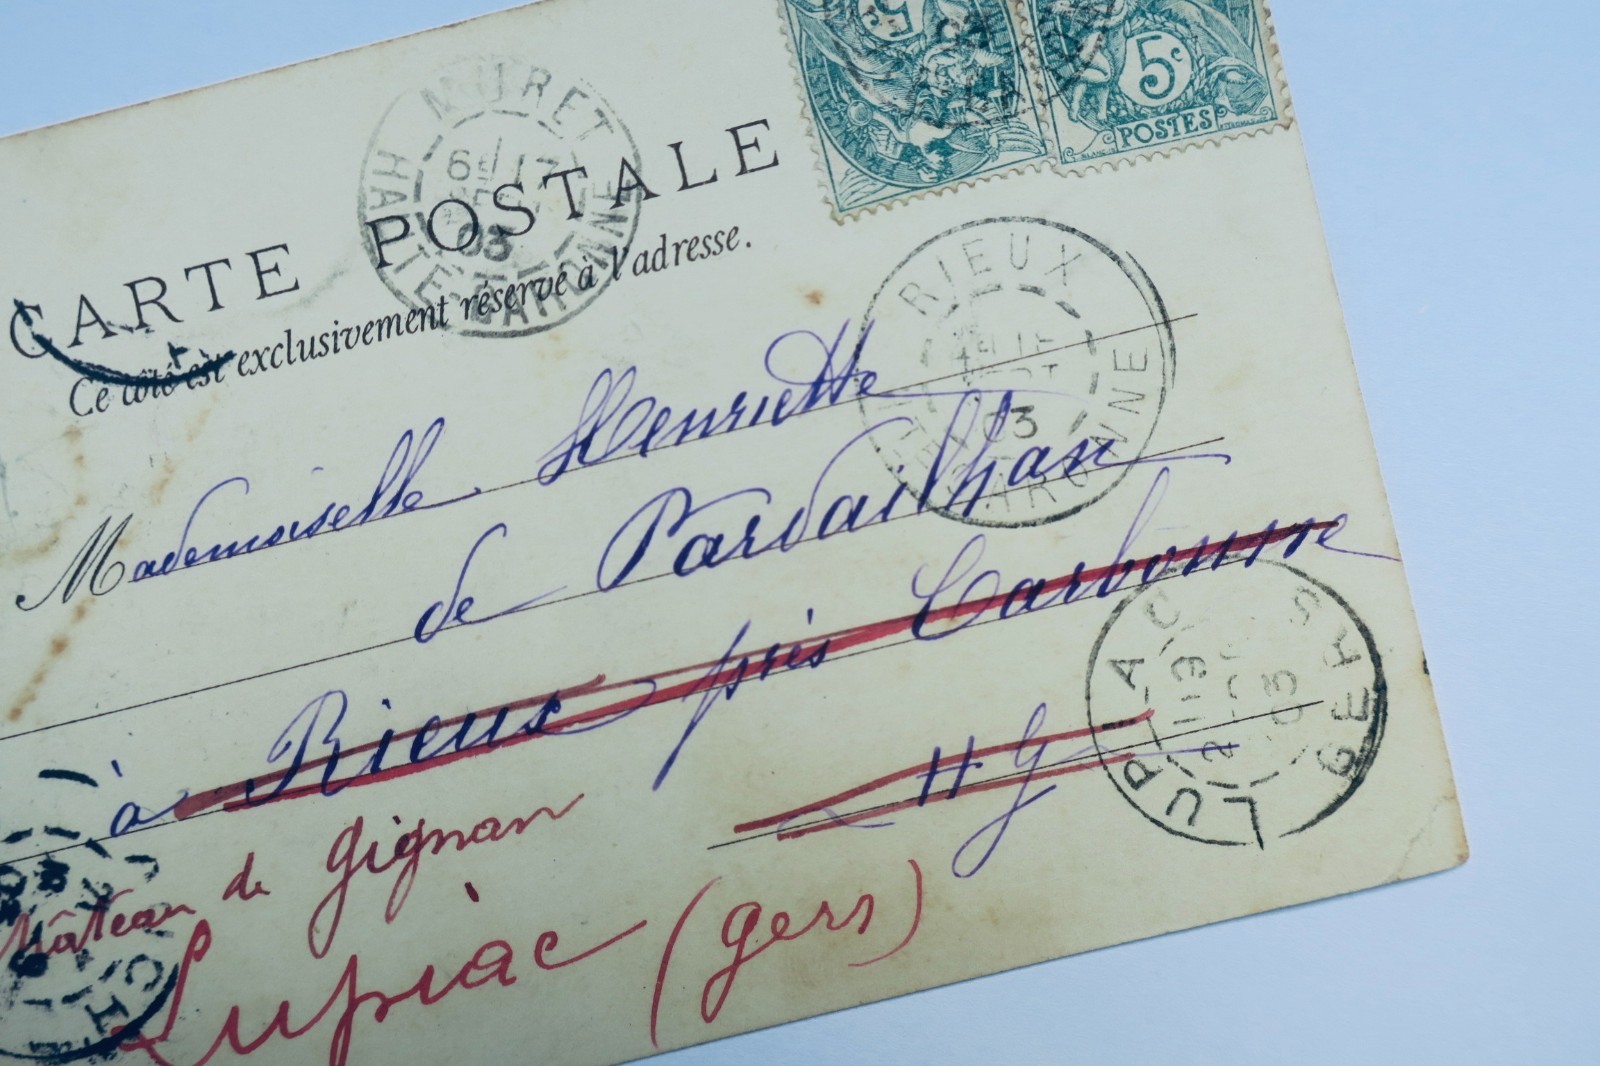 5
5c
POSTES
MURET
HAUTE-GARONNE
6E 17
03
CARTE POSTALE
Ce côté est exclusivement réservé à l'adresse.
RIEUX
GARONNE
03
Mademoiselle Henriette
de Pardailhan
à Rieux près Carbonne
H G
LUPIAC
GERS
03
Château de Gignan
Lupiac (Gers)